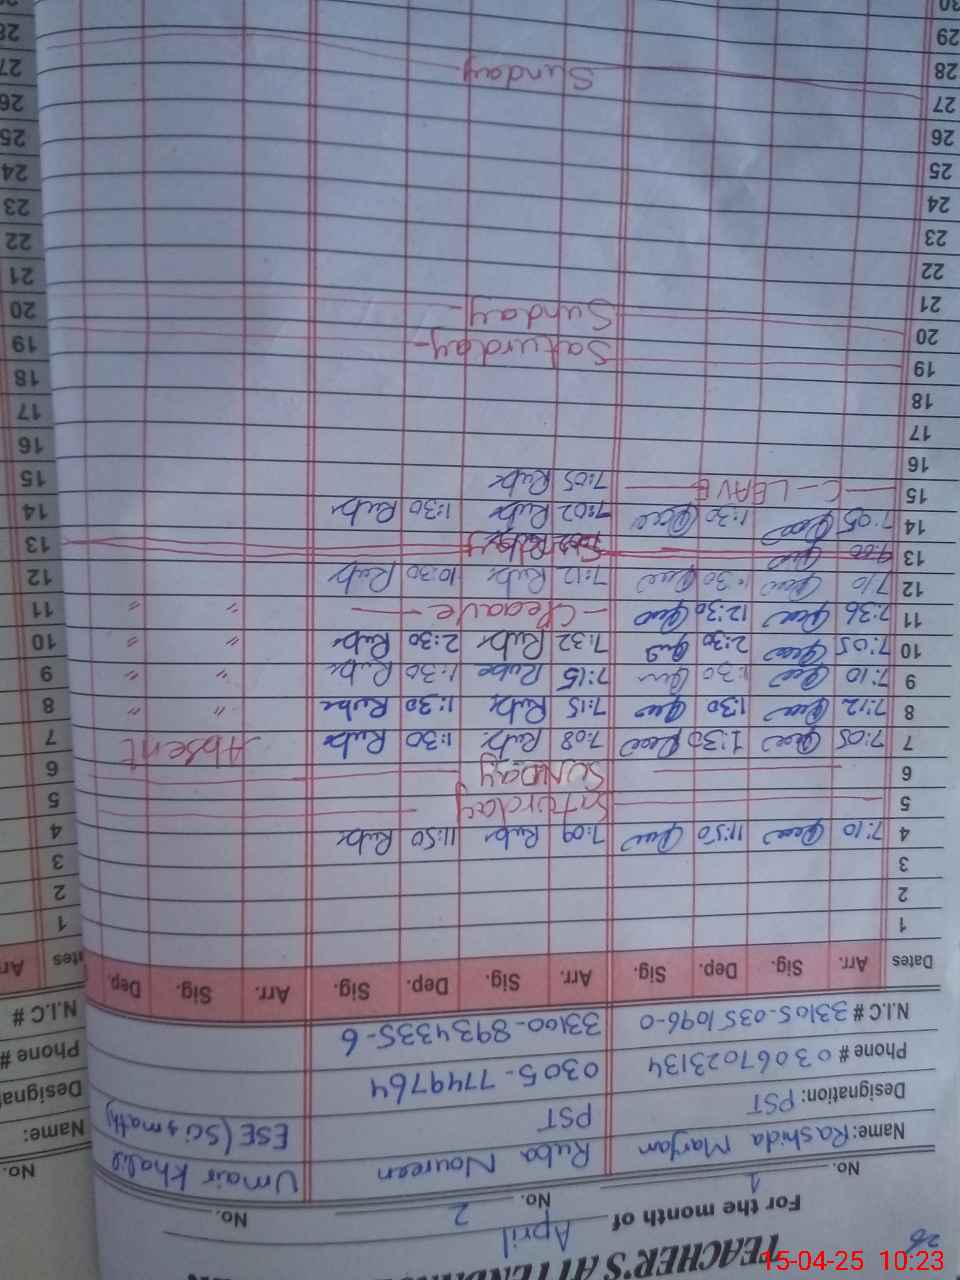 26
TEACHER'S ATTENDAN
For the month of April
No. 1 No. 2 No. No.
Name: Rashida Maryam Ruba Noureen Umair Khalil Name:
Designation: PST PST ESE (Sci + math) Designa
Phone # 03067023134 0305-7749764 Phone #
N.I.C # 33105-0351096-0 33100-8934335-6 N.I.C #
Dates Arr. Sig. Dep. Sig. Arr. Sig. Dep. Sig. Arr. Sig. Dep. ates Ar
1 1
2 2
3 3
4 7:10 11:50 7:09 Ruba 11:50 Ruba 4
5 Saturday 5
6 SUNDAY 6
7 7:05 1:30 7:08 Ruba 1:30 Ruba Absent 7
8 7:12 1:30 7:15 Ruba 1:30 Ruba " " 8
9 7:10 1:30 7:15 Ruba 1:30 Ruba " " 9
10 7:05 2:30 7:32 Ruba 2:30 Ruba " " 10
11 7:36 12:30 " " 11
12 7:10 1:30 7:12 Ruba 10:30 Ruba 12
13 13
14 7:05 1:30 7:02 Ruba 1:30 Ruba 14
15 C-LEAVE 7:05 Ruba 15
16 16
17 17
18 18
19 Saturday 19
20 Sunday 20
21 21
22 22
23 23
24 24
25 25
26 26
27 Sunday 27
28 28
29
30
15-04-25 10:23